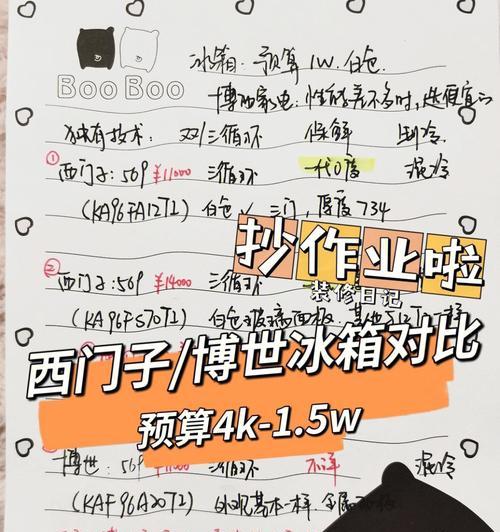 Boo Boo
冰箱: 预算1W. 白色
博西家电: 性能差不多时, 选便宜的
独有技术: 双/三循环 保鲜 制冷
① 西门子: 569 ¥11000 三循环 一代0度 混冷
(KA96FA12TI) 白色 三门, 厚度734
抄作业啦
装修日记
② 西门子: 569 ¥14000 三循环
(KA96FS70TI) 白色玻璃面板
西门子/博世冰箱对比
预算4k-1.5w
博世: 569 三循环 不详 混冷
(KAF96A20TI) 外观基本一样